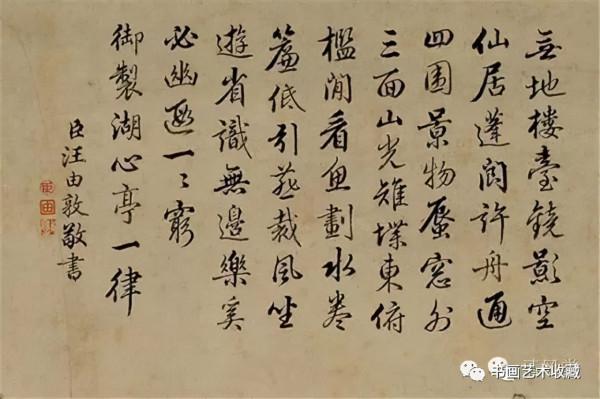 無地樓臺鏡影空
仙居蓬閬許舟通
四圍景物蜃窓外
三面山光雉堞東俯
檻閒看魚劃水捲
簾低引燕裁風坐
遊省識無邊樂奚
必幽遐一一窮
御製湖心亭一律
臣汪由敦敬書
书画艺术收藏